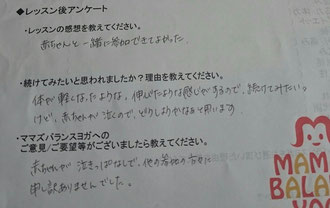 ◆レッスン後アンケート
・レッスンの感想を教えてください。
赤ちゃんと一緒に参加できてよかった.
・続けてみたいと思われましたか？理由を教えてください。
体が軽くなったような、伸びたような感じがするので、続けてみたい。
けど、赤ちゃんが泣くので、どうしようかなと思います
・ママズバランスヨガへの
ご意見/ご要望等がございましたら教えてください。
赤ちゃんが泣きっぱなしで、他の参加の方々に
申し訳ありませんでした。
MAM
BALA